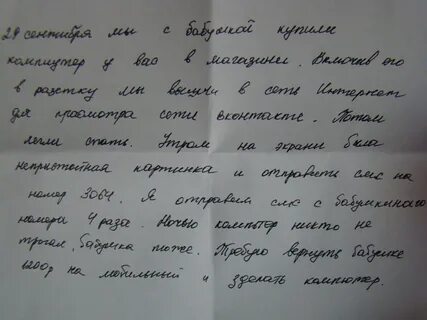 29 сентября мы с бабушкой купили
компиютер у вас в магазини. Включив его
в разетку мы вышли в сеть Интернет
для просмотра сети вконтакте. Потом
легли спать. Утром на экрани была
непристойная картинка и отправить смс на
номер 3064. Я отправил смс с бабушкиного
номера 4 раза. Ночью компютер никто не
трогал, бабушка тоже. Требую вернуть бабушке
1200р на мобильный и зделать компютер.